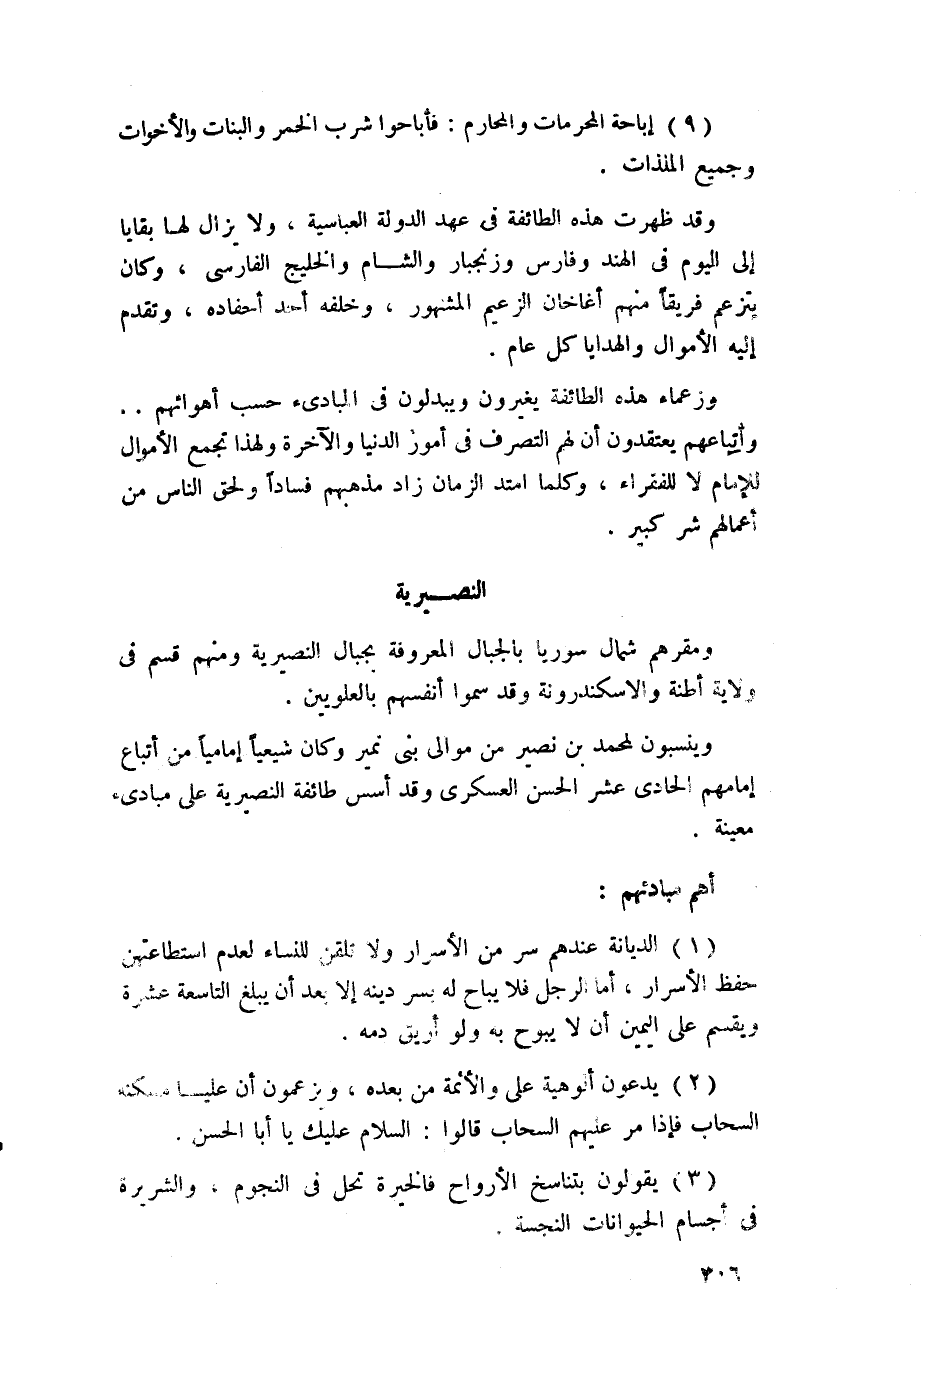 (٩) إباحة المحرمات والمحارم : فأباحوا شرب الخمر والبنات والأخوات
وجميع الملذات .
وقد ظهرت هذه الطائفة فى عهد الدولة العباسية ، ولا يزال لهـا بقايا
إلى اليوم فى الهند وفارس وزنجبار والشـــام والخليج الفارسى ، وكان
يتزعم فريقاً منهم أغاخان الزعيم المشهور ، وخلفه أحد أحفاده ، وتقدم
إليه الأموال والهدايا كل عام .
وزعماء هذه الطائفة يغيرون ويبدلون فى المبادىء حسب أهوائهم . .
وأتباعهم يعتقدون أن لهم التصرف فى أمور الدنيا والآخرة ولهذا تجمع الأموال
للإمام لا للفقراء ، وكلما امتد الزمان زاد مذهبهم فساداً ولحق الناس من
أعمالهم شر كبير .
النصـــيرية
ومقرهم شمال سوريا بالجبال المعروفة بجبال النصيرية ومنهم قسم فى
ولاية أطنة والاسكندرونة وقد سموا أنفسهم بالعلويين .
وينسبون لمحمد بن نصير من موالى بنى نمير وكان شيعياً إمامياً من أتباع
إمامهم الحادى عشر الحسن العسكرى وقد أسس طائفة النصيرية على مبادىء
معينة .
أهم مبادئهم :
(١) الديانة عندهم سر من الأسرار ولا تلقن للنساء لعدم استطاعتهن
حفظ الأسرار ، أما الرجل فلا يباح له بسر دينه إلا بعد أن يبلغ التاسعة عشرة
ويقسم على اليمين أن لا يبوح به ولو أريق دمه .
(٢) يدعون ألوهية على والأئمة من بعده ، ويزعمون أن عليـــا مسكنه
السحاب فإذا مر عليهم السحاب قالوا : السلام عليك يا أبا الحسن .
(٣) يقولون بتناسخ الأرواح فالخيرة تحل فى النجوم ، والشريرة
فى أجسام الحيوانات النجسة .
٣٠٦